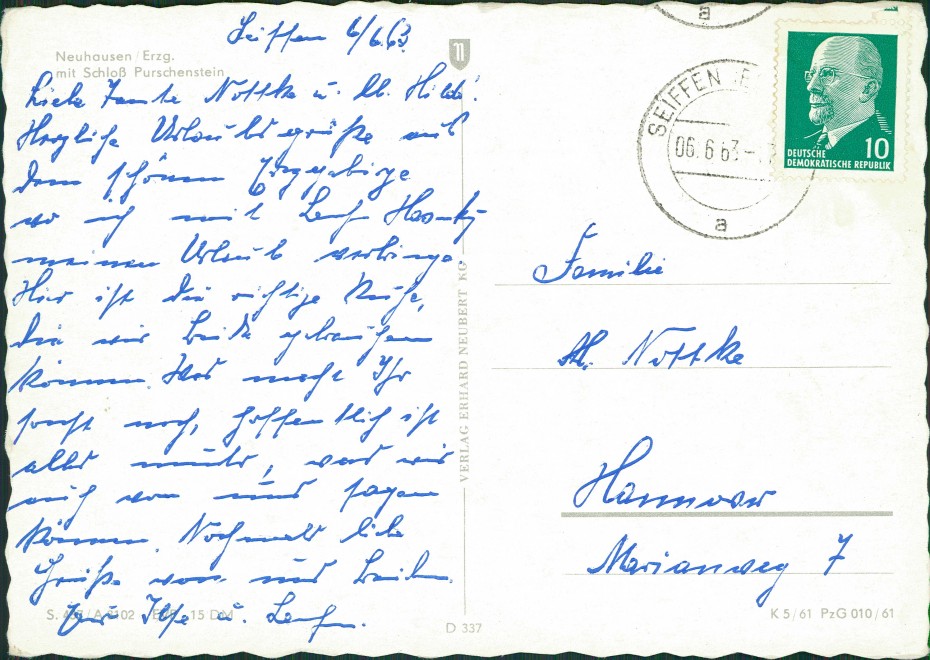 Seiffen 6/6.63.
Neuhausen / Erzg.
mit Schloß Purschenstein
Liebe Tante Nottke u. lb. Hilde!
Herzliche Urlaubsgrüße aus
dem schönen Erzgebirge
wo ich mit
meinen Urlaub verbringe.
Hier ist die richtige Ruhe,
die wir Beide gebrauchen
können. Was macht Ihr
sonst noch, hoffentlich ist
alles munter, was wir
auch von uns sagen
können. Nochmals liebe
Grüße von uns Beiden
Ilse u.
15 DM
VERLAG ERHARD NEUBERT KG
D 337
SEIFFEN
06.6.63
a
a
DEUTSCHE
DEMOKRATISCHE REPUBLIK
10
Familie
Nottke
Hannover
Marianweg 7
K 5/61 PzG 010/61